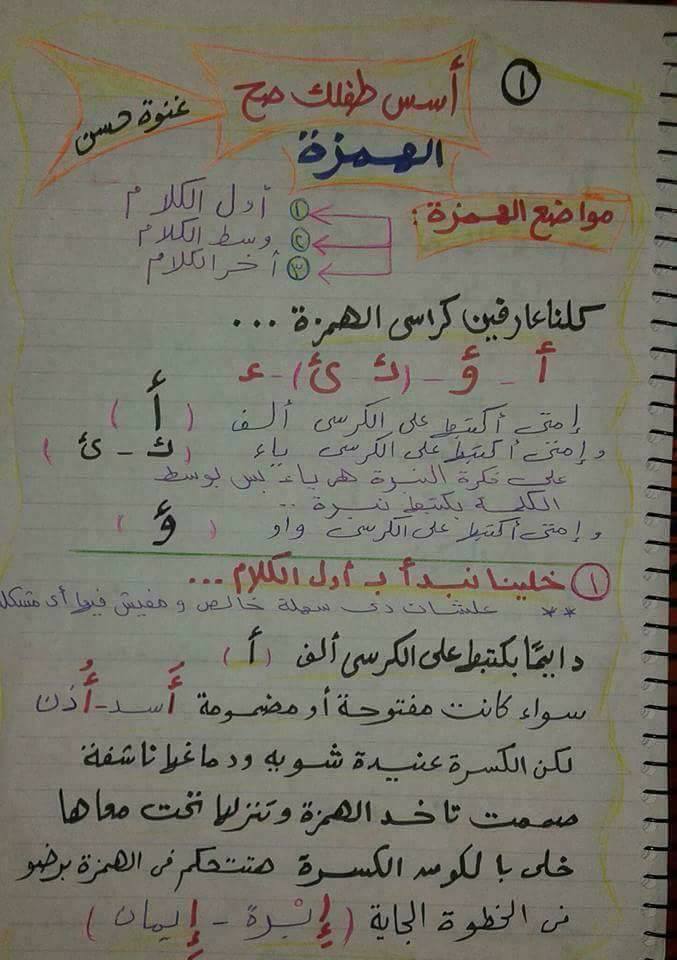 ١
أسس طفلك صح
غنوة حسن
الهمزة
مواضع الهمزة :
١ أول الكلام
٢ وسط الكلام
٣ أخر الكلام
كلنا عارفين كراسى الهمزة ...
أ - ؤ - (ئـ - ئ) - ء
إمتى أكتبها على الكرسى ألف (أ)
و إمتى أكتبها على الكرسى ياء (ئـ - ئ)
على فكرة النبرة هى ياء بس بوسط
الكلمة بكتبها نبرة ..
و إمتى أكتبها على الكرسى واو (ؤ)
١ خلينا نبدأ بـ أول الكلام ...
** علشان دى سهلة خالص و مفيش فيها أى مشكلة
دايمًا بكتبها على الكرسى ألف (أ)
سواء كانت مفتوحة أو مضمومة أَسد - أُذن
لكن الكسرة عنيدة شويه ودماغها ناشفة
صممت تاخد الهمزة وتنزلها تحت معاها
خلى بالكوم الكسرة هتتحكم فى الهمزة برضو
فى الخطوة الجاية (إِبْرة - إِيمان)